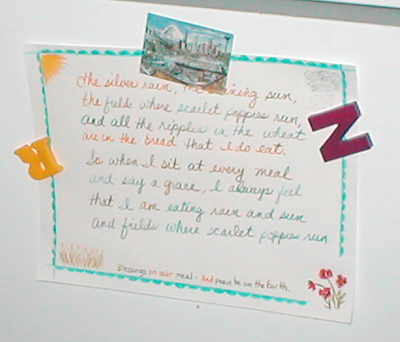 The silver rain, the shining sun,
the fields where scarlet poppies run,
and all the ripples in the wheat
are in the bread that I do eat.
So when I sit at every meal
and say a grace, I always feel
that I am eating rain and sun
and fields where scarlet poppies run.
Blessings on our meal - and peace be on the Earth.
R
N